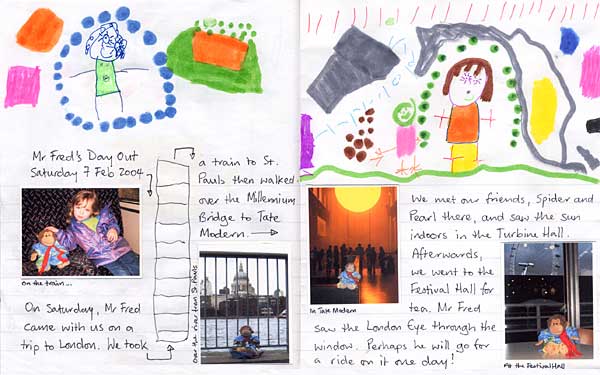 Mr Fred's Day Out
Saturday 7 Feb 2004
on the train...
On Saturday, Mr Fred
came with us on a
trip to London. We took
a train to St.
Pauls then walked
over the Millennium
Bridge to Tate
Modern.
Over the river from St. Pauls
We met our friends, Spider and
Pearl there, and saw the sun
indoors in the Turbine Hall.
In Tate Modern
Afterwards,
we went to the
Festival Hall for
tea. Mr Fred
saw the London Eye through the
window. Perhaps he will go for
a ride on it one day!
At the Festival Hall